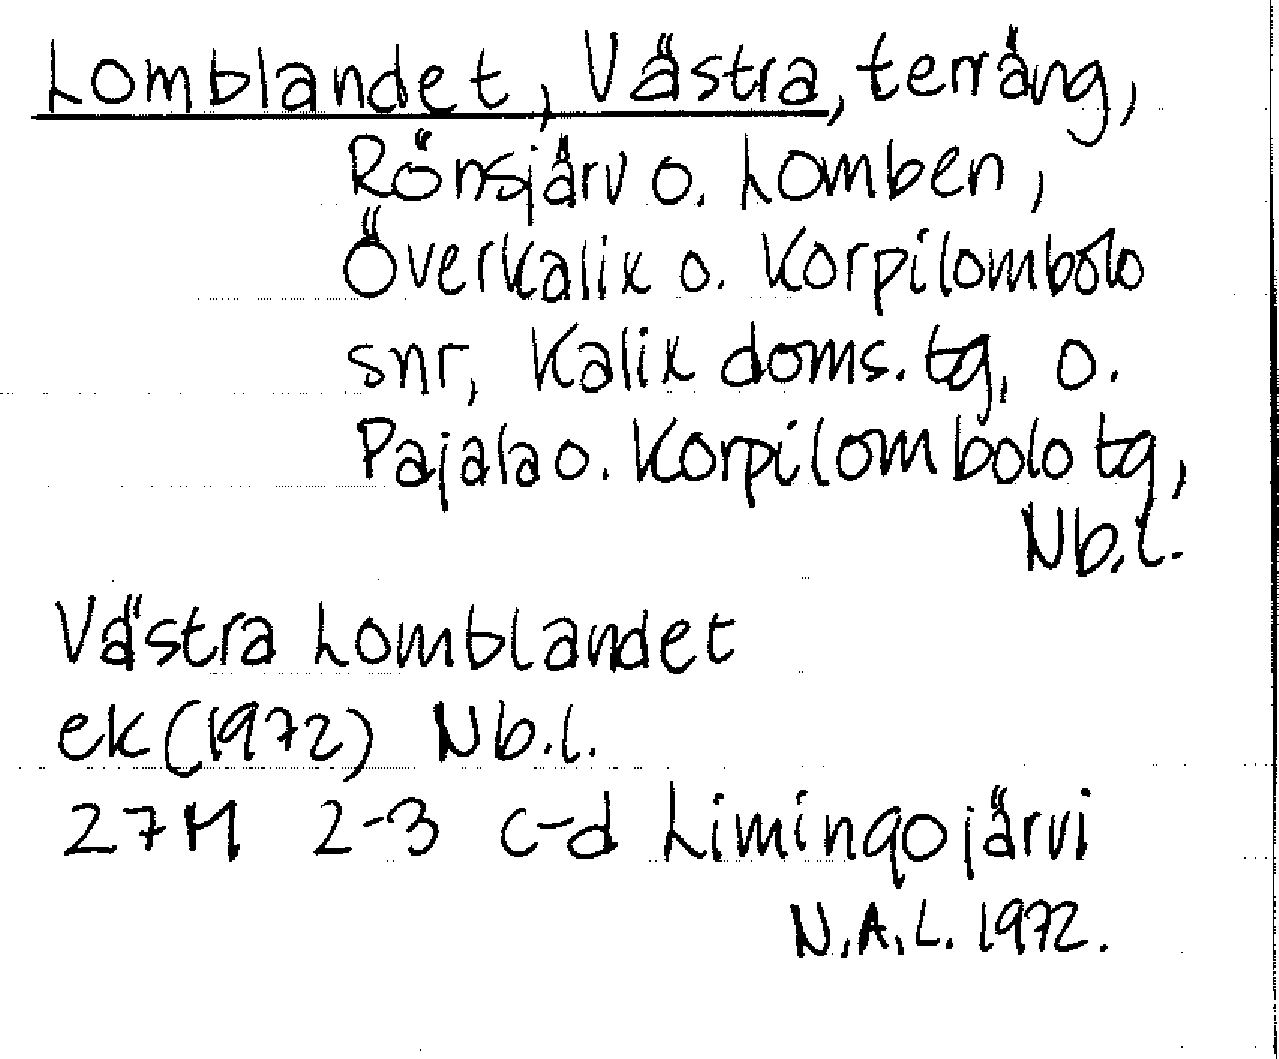 Lomblandet, Västra, terräng,
Rönsjärv o. Lomben,
Överkalix o. Korpilombolo
snr, Kalix doms.tg, o.
Pajala o. Korpilombolo tg,
Nb.l.
Västra Lomblandet
ek (1972) Nb.l.
27M 2-3 c-d Limingojärvi
N.A.L. 1972.